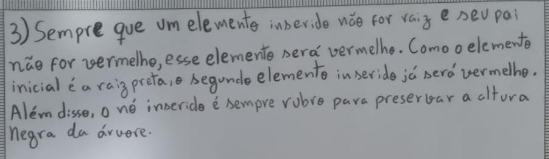 3) Sempre que um elemento inserido não for raiz e seu pai
não for vermelho, esse elemento será vermelho. Como o elemento
inicial é a raiz preta, o segundo elemento inserido já será vermelho.
Além disso, o nó inserido é sempre rubro para preservar a altura
negra da árvore.